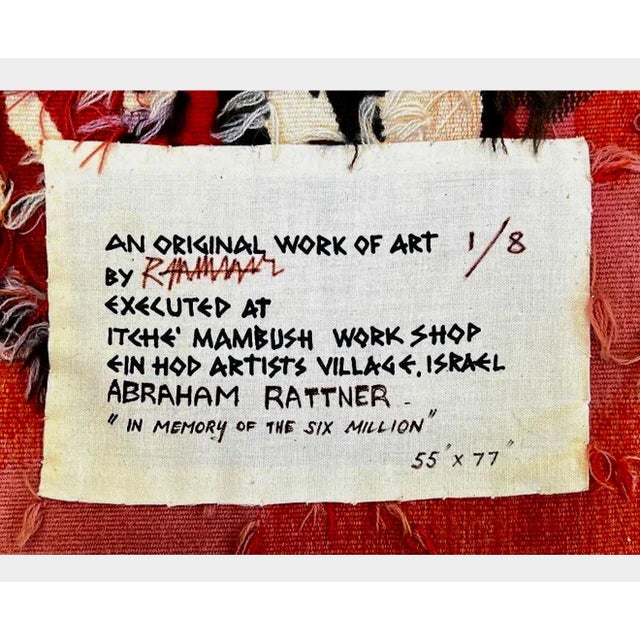 AN ORIGINAL WORK OF ART 1/8
BY Rattner
EXECUTED AT
ITCHE' MAMBUSH WORK SHOP
EIN HOD ARTISTS VILLAGE, ISRAEL
ABRAHAM RATTNER -
"IN MEMORY OF THE SIX MILLION"
55" x 77"